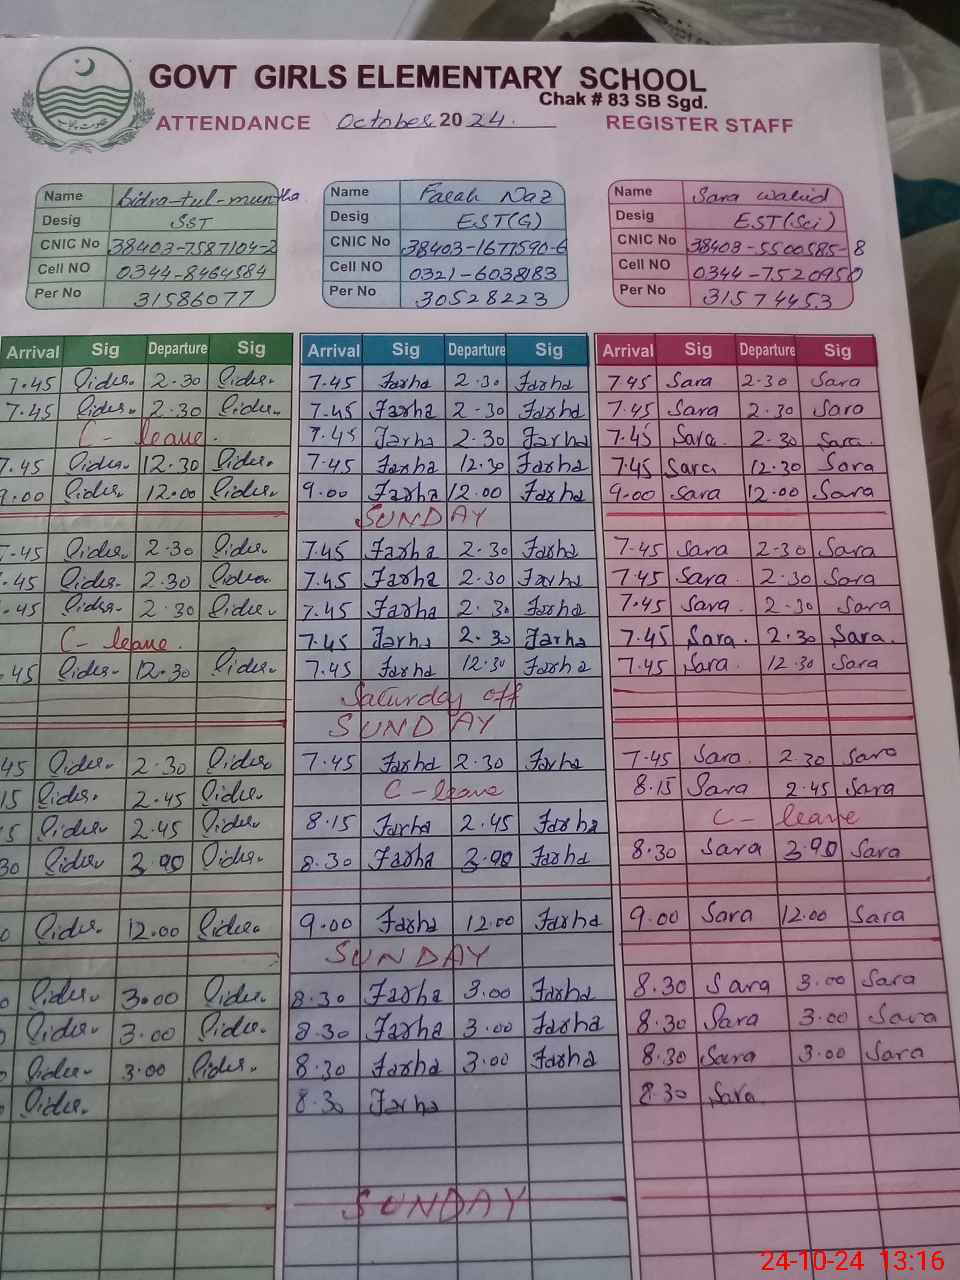 GOVT GIRLS ELEMENTARY SCHOOL
Chak # 83 SB Sgd.
ATTENDANCE October 2024. REGISTER STAFF
Name Sidra-tul-muntha Name Farah Naz Name Sara wahid
Desig SST Desig EST(G) Desig EST(Sci)
CNIC No 38403-7587104-2 CNIC No 38403-1677590-6 CNIC No 38403-5500585-8
Cell NO 0344-8464584 Cell NO 0321-6038183 Cell NO 0344-7520950
Per No 31586077 Per No 30528223 Per No 31574453
Arrival Sig Departure Sig Arrival Sig Departure Sig Arrival Sig Departure Sig
7.45 2.30 7.45 Farha 2.30 Farha 7.45 Sara 2.30 Sara
7.45 2.30 7.45 Farha 2.30 Farha 7.45 Sara 2.30 Sara
C- leave. 7.45 Farha 2.30 Farha 7.45 Sara. 2.30 Sara.
7.45 12.30 7.45 Farha 12.30 Farha 7.45 Sara 12.30 Sara
9.00 12.00 9.00 Farha 12.00 Farha 9.00 Sara 12.00 Sara
SUNDAY
7.45 2.30 7.45 Farha 2.30 Farha 7.45 Sara 2.30 Sara
.45 2.30 7.45 Farha 2.30 Farha 7.45 Sara. 2.30 Sara
.45 2.30 7.45 Farha 2.30 Farha 7.45 Sara. 2.30 Sara
C- leave. 7.45 Farha 2.30 Farha 7.45 Sara. 2.30 Sara.
45 12.30 7.45 Farha 12.30 Farha 7.45 Sara. 12.30 Sara
Saturday off
SUNDAY
45 2.30 7.45 Farha 2.30 Farha 7.45 Sara. 2.30 Sara
15 2.45 C-leave 8.15 Sara 2.45 Sara
5 2.45 8.15 Farha 2.45 Farha C- leave
30 3.90 8.30 Farha 3.90 Farha 8.30 Sara 3.90 Sara
0 12.00 9.00 Farha 12.00 Farha 9.00 Sara 12.00 Sara
SUNDAY
0 3.00 8.30 Farha 3.00 Farha 8.30 Sara 3.00 Sara
0 3.00 8.30 Farha 3.00 Farha 8.30 Sara 3.00 Sara
0 3.00 8.30 Farha 3.00 Farha 8.30 Sara 3.00 Sara
0 8.30 Farha 8.30 Sara.
SUNDAY
24-10-24 13:16